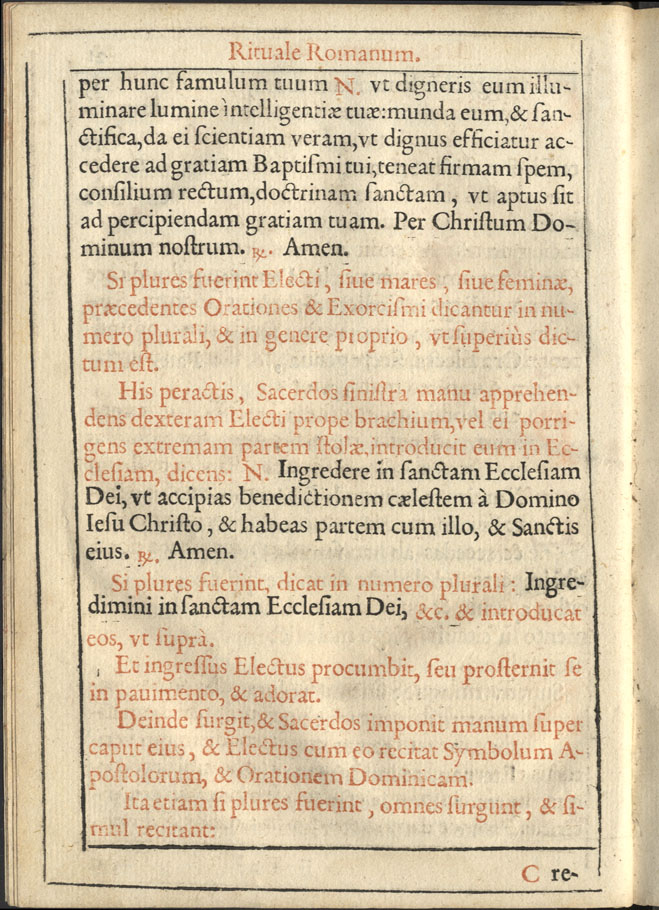 Rituale Romanum.
per hunc famulum tuum N. vt digneris eum illu-
minare lumine ìntelligentiæ tuæ:munda eum,& ſan-
ctifica,da ei ſcientiam veram,vt dignus efficiatur ac-
cedere ad gratiam Baptiſmi tui,teneat firmam ſpem,
conſilium rectum,doctrinam ſanctam, vt aptus ſit
ad percipiendam gratiam tuam. Per Chriſtum Do-
minum noſtrum. ℞. Amen.
Si plures fuerint Electi, ſiue mares, ſiue feminæ,
præcedentes Orationes & Exorciſmi dicantur in nu-
mero plurali, & in genere proprio, vt ſuperiùs dic-
tum eſt.
His peractis, Sacerdos ſiniſtra manu apprehen-
dens dexteram Electi prope brachium,vel ei porri-
gens extremam partem ſtolæ,introducit eum in Ec-
cleſiam, dicens: N. Ingredere in ſanctam Eccleſiam
Dei, vt accipias benedictionem cæleſtem à Domino
Ieſu Chriſto, & habeas partem cum illo, & Sanctis
eius. ℞. Amen.
Si plures fuerint, dicat in numero plurali: Ingre-
dimini in ſanctam Eccleſiam Dei, &c. & introducat
eos, vt ſuprà.
Et ingreſſus Electus procumbit, ſeu proſternit ſe
in pauimento, & adorat.
Deinde ſurgit,& Sacerdos imponit manum ſuper
caput eius, & Electus cum eo recitat Symbolum A-
poſtolorum, & Orationem Dominicam.
Ita etiam ſi plures fuerint, omnes ſurgunt, & ſi-
mul recitant:
C re-